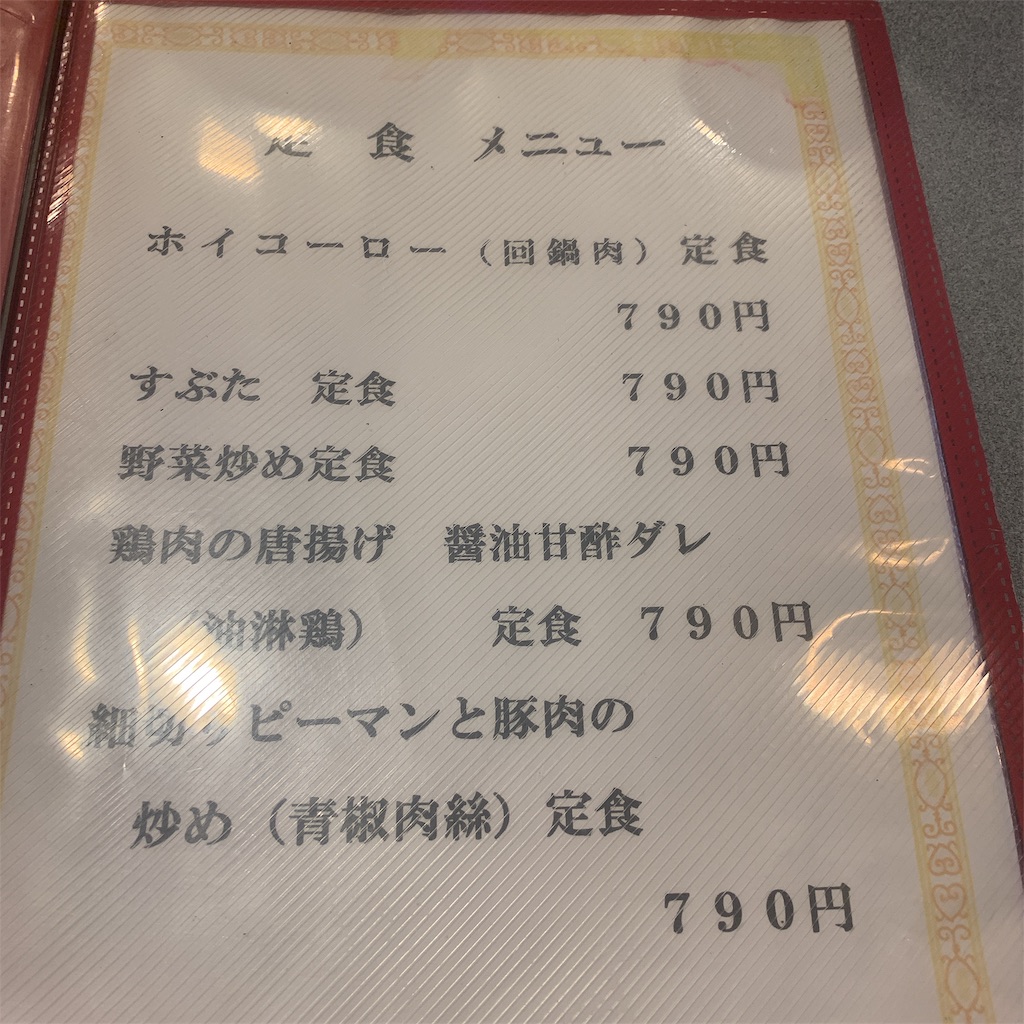 定　食　メニュー
ホイコーロー（回鍋肉）定食
７９０円
すぶた　定食　７９０円
野菜炒め定食　７９０円
鶏肉の唐揚げ　醤油甘酢ダレ
（油淋鶏）　定食　７９０円
細切りピーマンと豚肉の
炒め（青椒肉絲）定食
７９０円